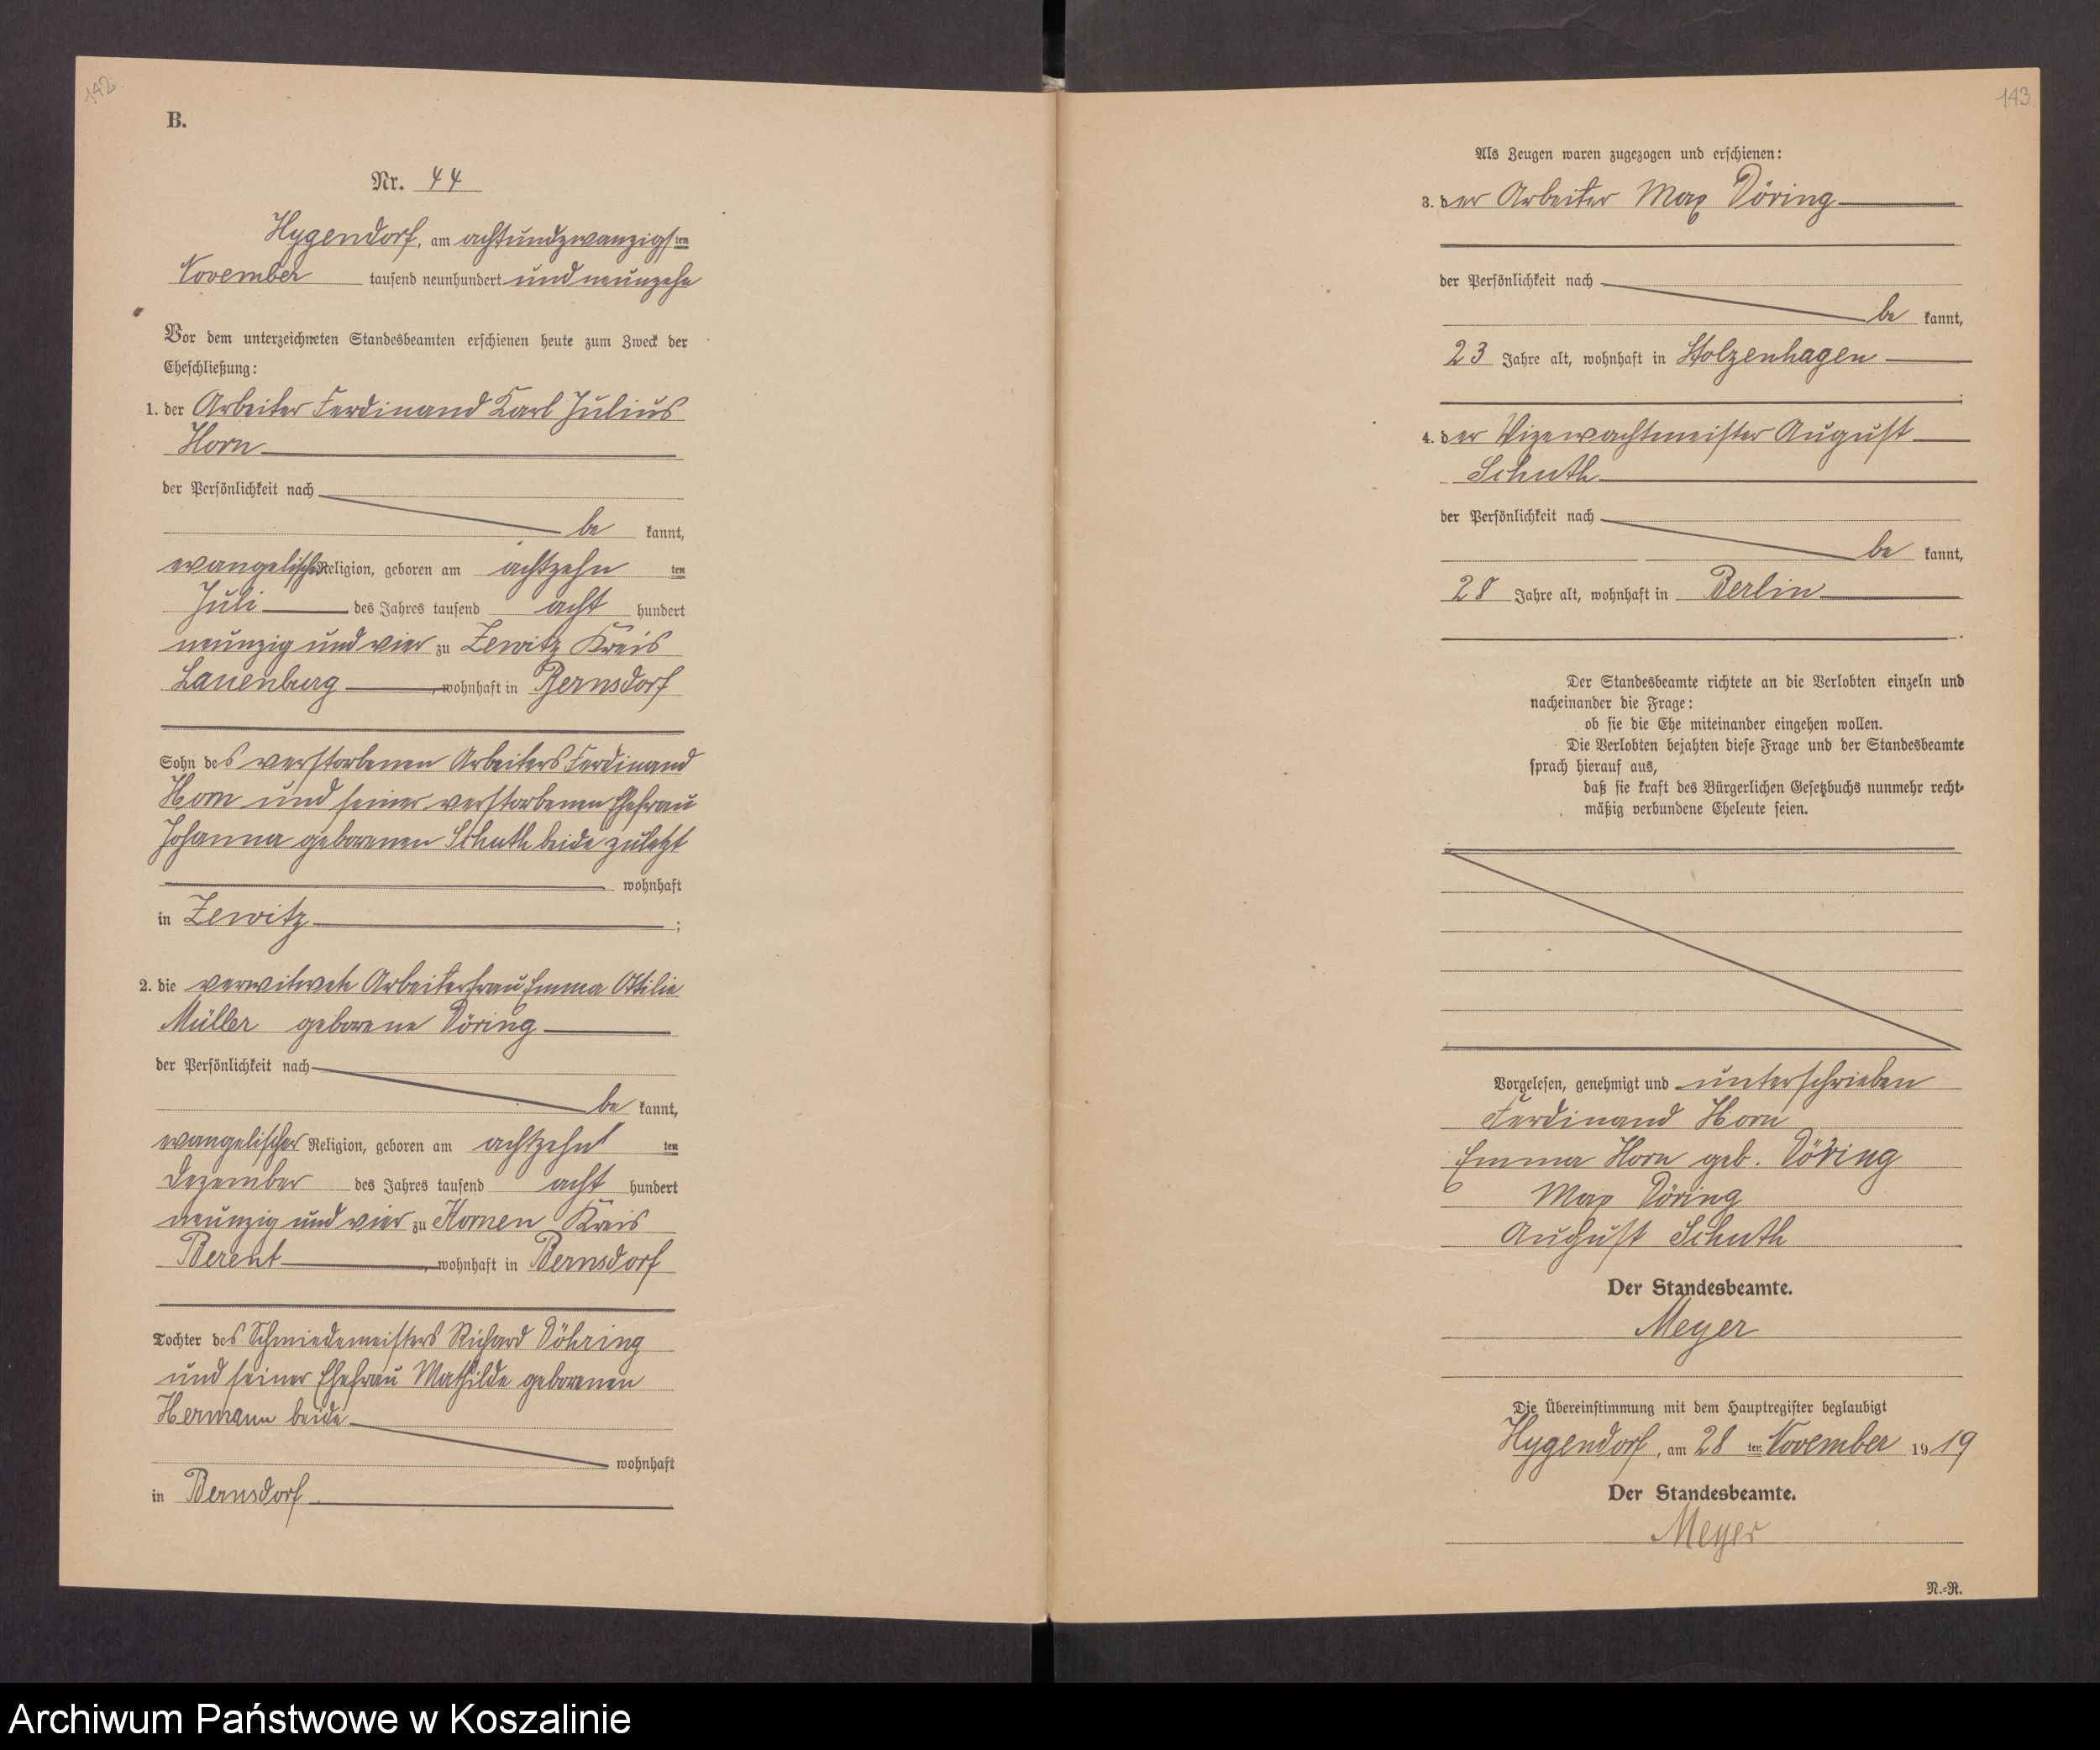 142
B.
Nr. 44
Hygendorf, am achtundzwanzigsten
November tausend neunhundert und neunzehn
Vor dem unterzeichneten Standesbeamten erschienen heute zum Zweck der
Eheschließung:
1. der Arbeiter Ferdinand Karl Julius
Horn
der Persönlichkeit nach
be kannt,
evangelischer Religion, geboren am achtzehn ten
Juli des Jahres tausend acht hundert
neunzig und vier zu Zewitz Kreis
Lauenburg, wohnhaft in Bernsdorf
Sohn des verstorbenen Arbeiters Ferdinand
Horn und seiner verstorbenen Ehefrau
Johanna geborenen Schuth beide zuletzt
wohnhaft
in Zewitz ;
2. die verwitwete Arbeiterfrau Emma Ottilie
Müller geborene Döring
der Persönlichkeit nach
be kannt,
evangelischer Religion, geboren am achtzehn ten
Dezember des Jahres tausend acht hundert
neunzig und vier zu Kornen Kreis
Berent, wohnhaft in Bernsdorf
Tochter des Schmiedemeisters Richard Döhring
und seiner Ehefrau Mathilde geborenen
Hermann beide
wohnhaft
in Bernsdorf
143
Als Zeugen waren zugezogen und erschienen:
3. der Arbeiter Max Döring
der Persönlichkeit nach
be kannt,
23 Jahre alt, wohnhaft in Stolzenhagen
4. der Vizewachtmeister August
Schuth
der Persönlichkeit nach
be kannt,
28 Jahre alt, wohnhaft in Berlin
Der Standesbeamte richtete an die Verlobten einzeln und
nacheinander die Frage:
ob sie die Ehe miteinander eingehen wollen.
Die Verlobten bejahten diese Frage und der Standesbeamte
sprach hierauf aus,
daß sie kraft des Bürgerlichen Gesetzbuchs nunmehr recht-
mäßig verbundene Eheleute seien.
Vorgelesen, genehmigt und unterschrieben
Ferdinand Horn
Emma Horn geb. Döring
Max Döring
August Schuth
Der Standesbeamte.
Meyer
Die Übereinstimmung mit dem Hauptregister beglaubigt
Hygendorf, am 28 ten November 1919
Der Standesbeamte.
Meyer
N.-R.
Archiwum Państwowe w Koszalinie